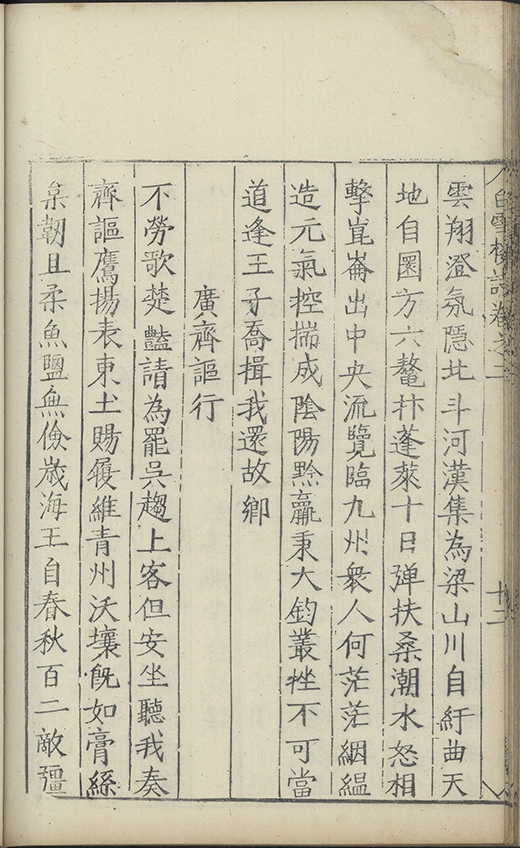 白雪樓詩卷之二
十二
雲翔澄氛隱北斗河漢集為梁山川自紆曲天
地自圓方六鼇抃蓬萊十日殫扶桑潮水怒相
擊崑崙出中央流覽臨九州衆人何茫茫絪縕
造元氣控揣成陰陽黔羸秉大鈞叢挫不可當
道逢王子喬揖我還故鄉
廣齊謳行
不勞歌楚豔請為罷吳趨上客但安坐聽我奏
齊謳鷹揚表東土賜履維青州沃壤既如膏絲
枲韌且柔魚鹽無儉歲海王自春秋百二敵彊